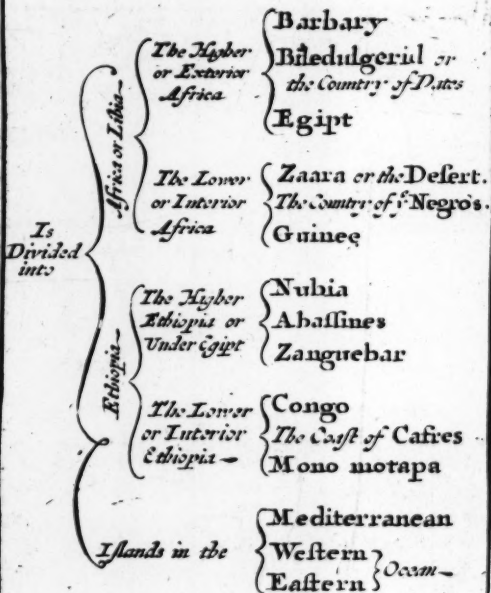 Is
Divided
into
Africa or Libia
The Higher
or Exterior
Africa
Barbary
Biledulgerid or
the Country of Dates
Egipt
The Lower
or Interior
Africa
Zaara or the Desert.
The Country of yͤ Negro's.
Guinee
Ethiopia
The Higher
Ethiopia or
Under Egipt
Nubia
Abassines
Zanguebar
The Lower
or Interior
Ethiopia
Congo
The Coast of Cafres
Mono motapa
Islands in the
Mediterranean
Western
Eastern
Ocean